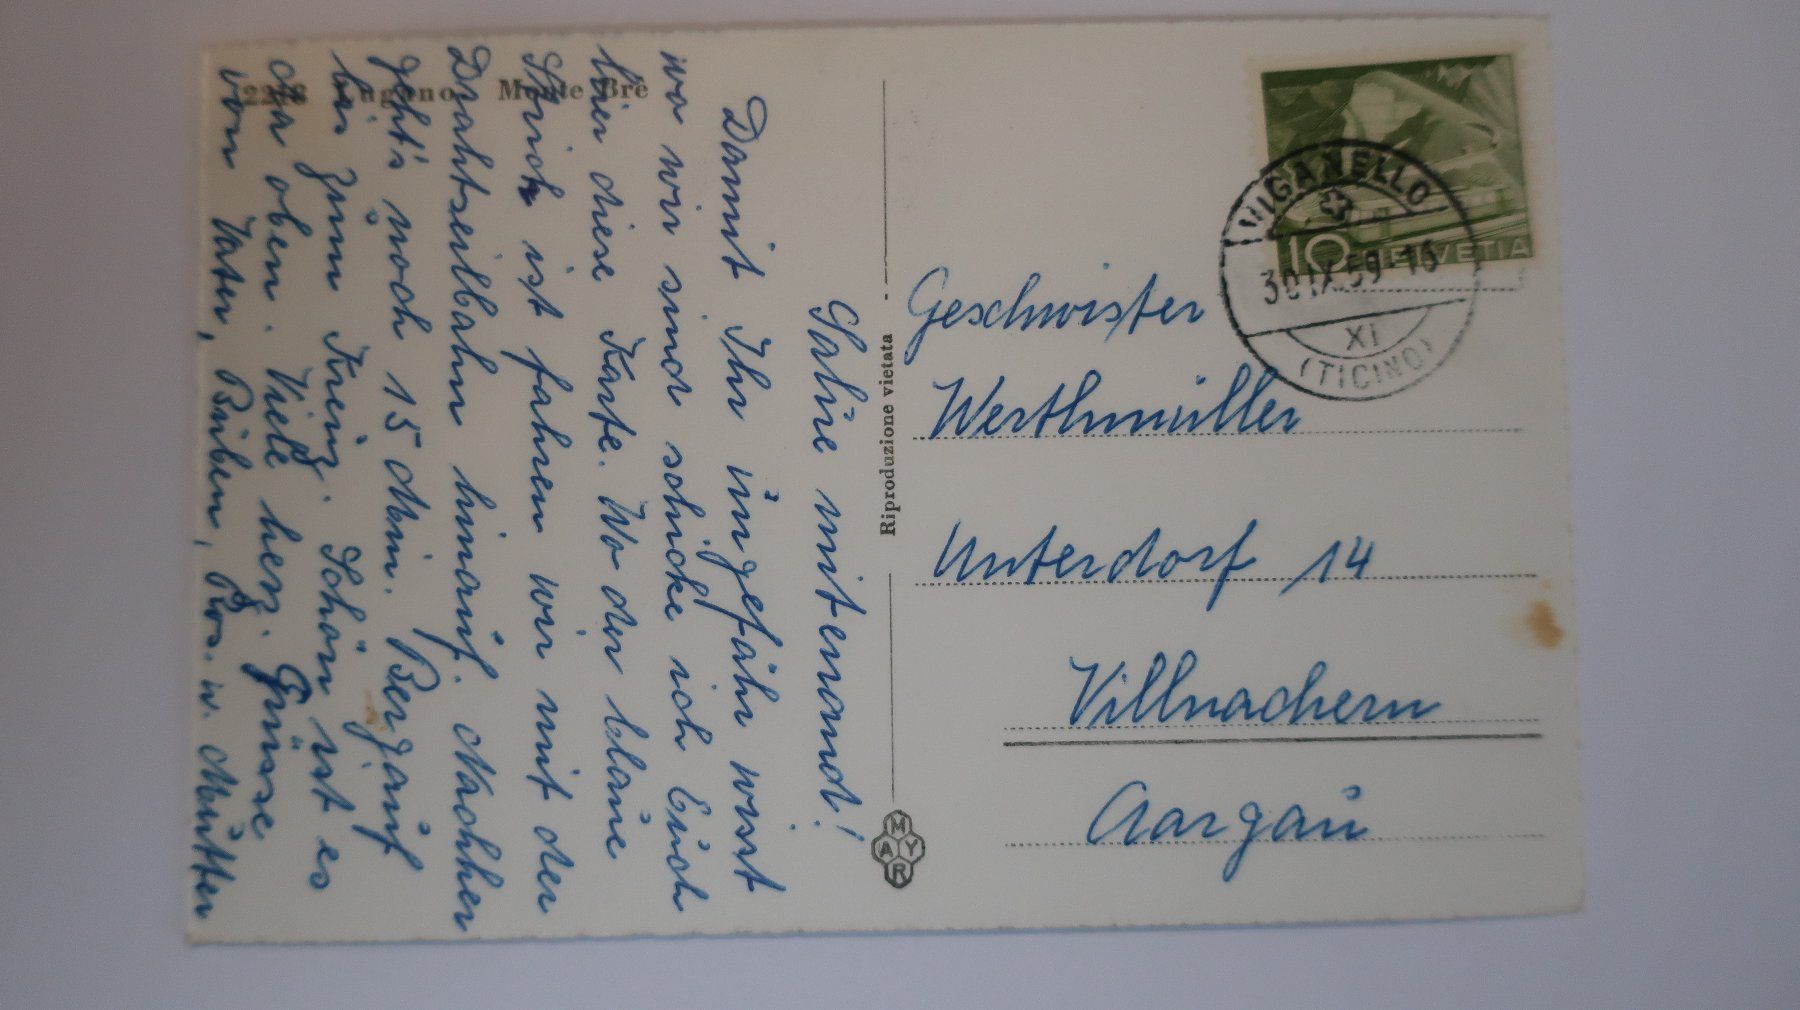 2228 Lugano - Monte Brè
Salüe mitenand!
Damit Ihr ungefähr wisst
wo wir sind schicke ich Euch
hier diese Karte. Wo der blaue
Strich ist fahren wir mit der
Drahtseilbahn hinauf. Nachher
geht's noch 15 Min. Bergauf
bis zum Kreuz. Schön ist es
da oben. Viele herz. Grüsse
von Vater, Büben, Ros. u. Mutter
Riproduzione vietata
MAYR
HELVETIA
10
VIGANELLO
30 IX 59-16
XI
(TICINO)
Geschwister
Werthmüller
Unterdorf 14
Villnachern
Aargau